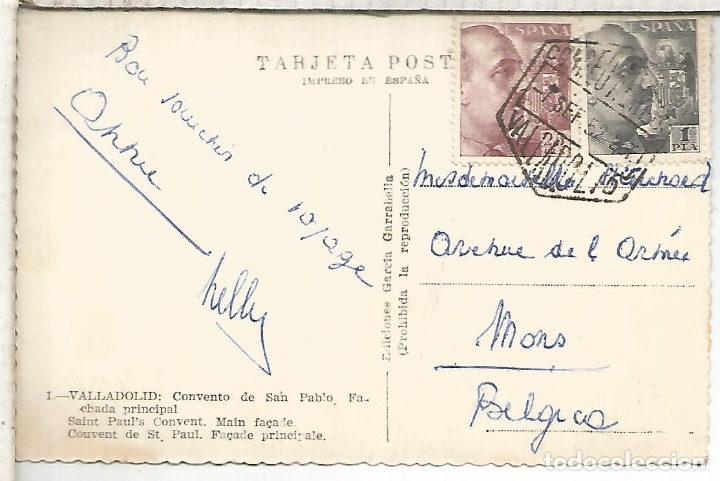 TARJETA POST
IMPRESO EN ESPAÑA
ESPAÑA
ESPAÑA
1
PTA
VALLADOLID
Bon souvenir de voyage
Nelly
Ediciones García Garrabella
(Prohibida la reproducción)
Mesdemoiselles
Avenue de l'Armée
Mons
Belgica
1.—VALLADOLID: Convento de San Pablo. Fa-
chada principal
Saint Paul's Convent. Main façade.
Couvent de St. Paul. Façade principale.
todocoleccion.net